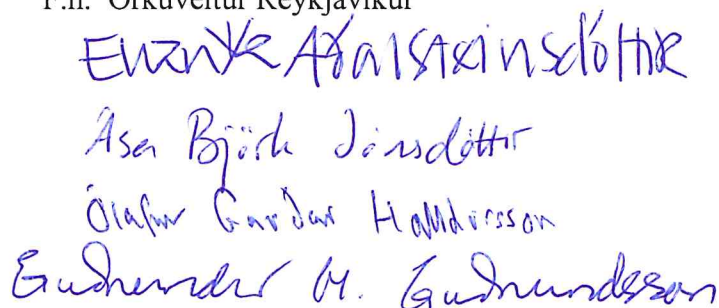 F.h. Orkuveitur Reykjavíkur
Aðalsteinsdóttir
Ása Björk Jónsdóttir
Ólafur Garðar Halldórsson
Guðmundur M. Guðmundsson